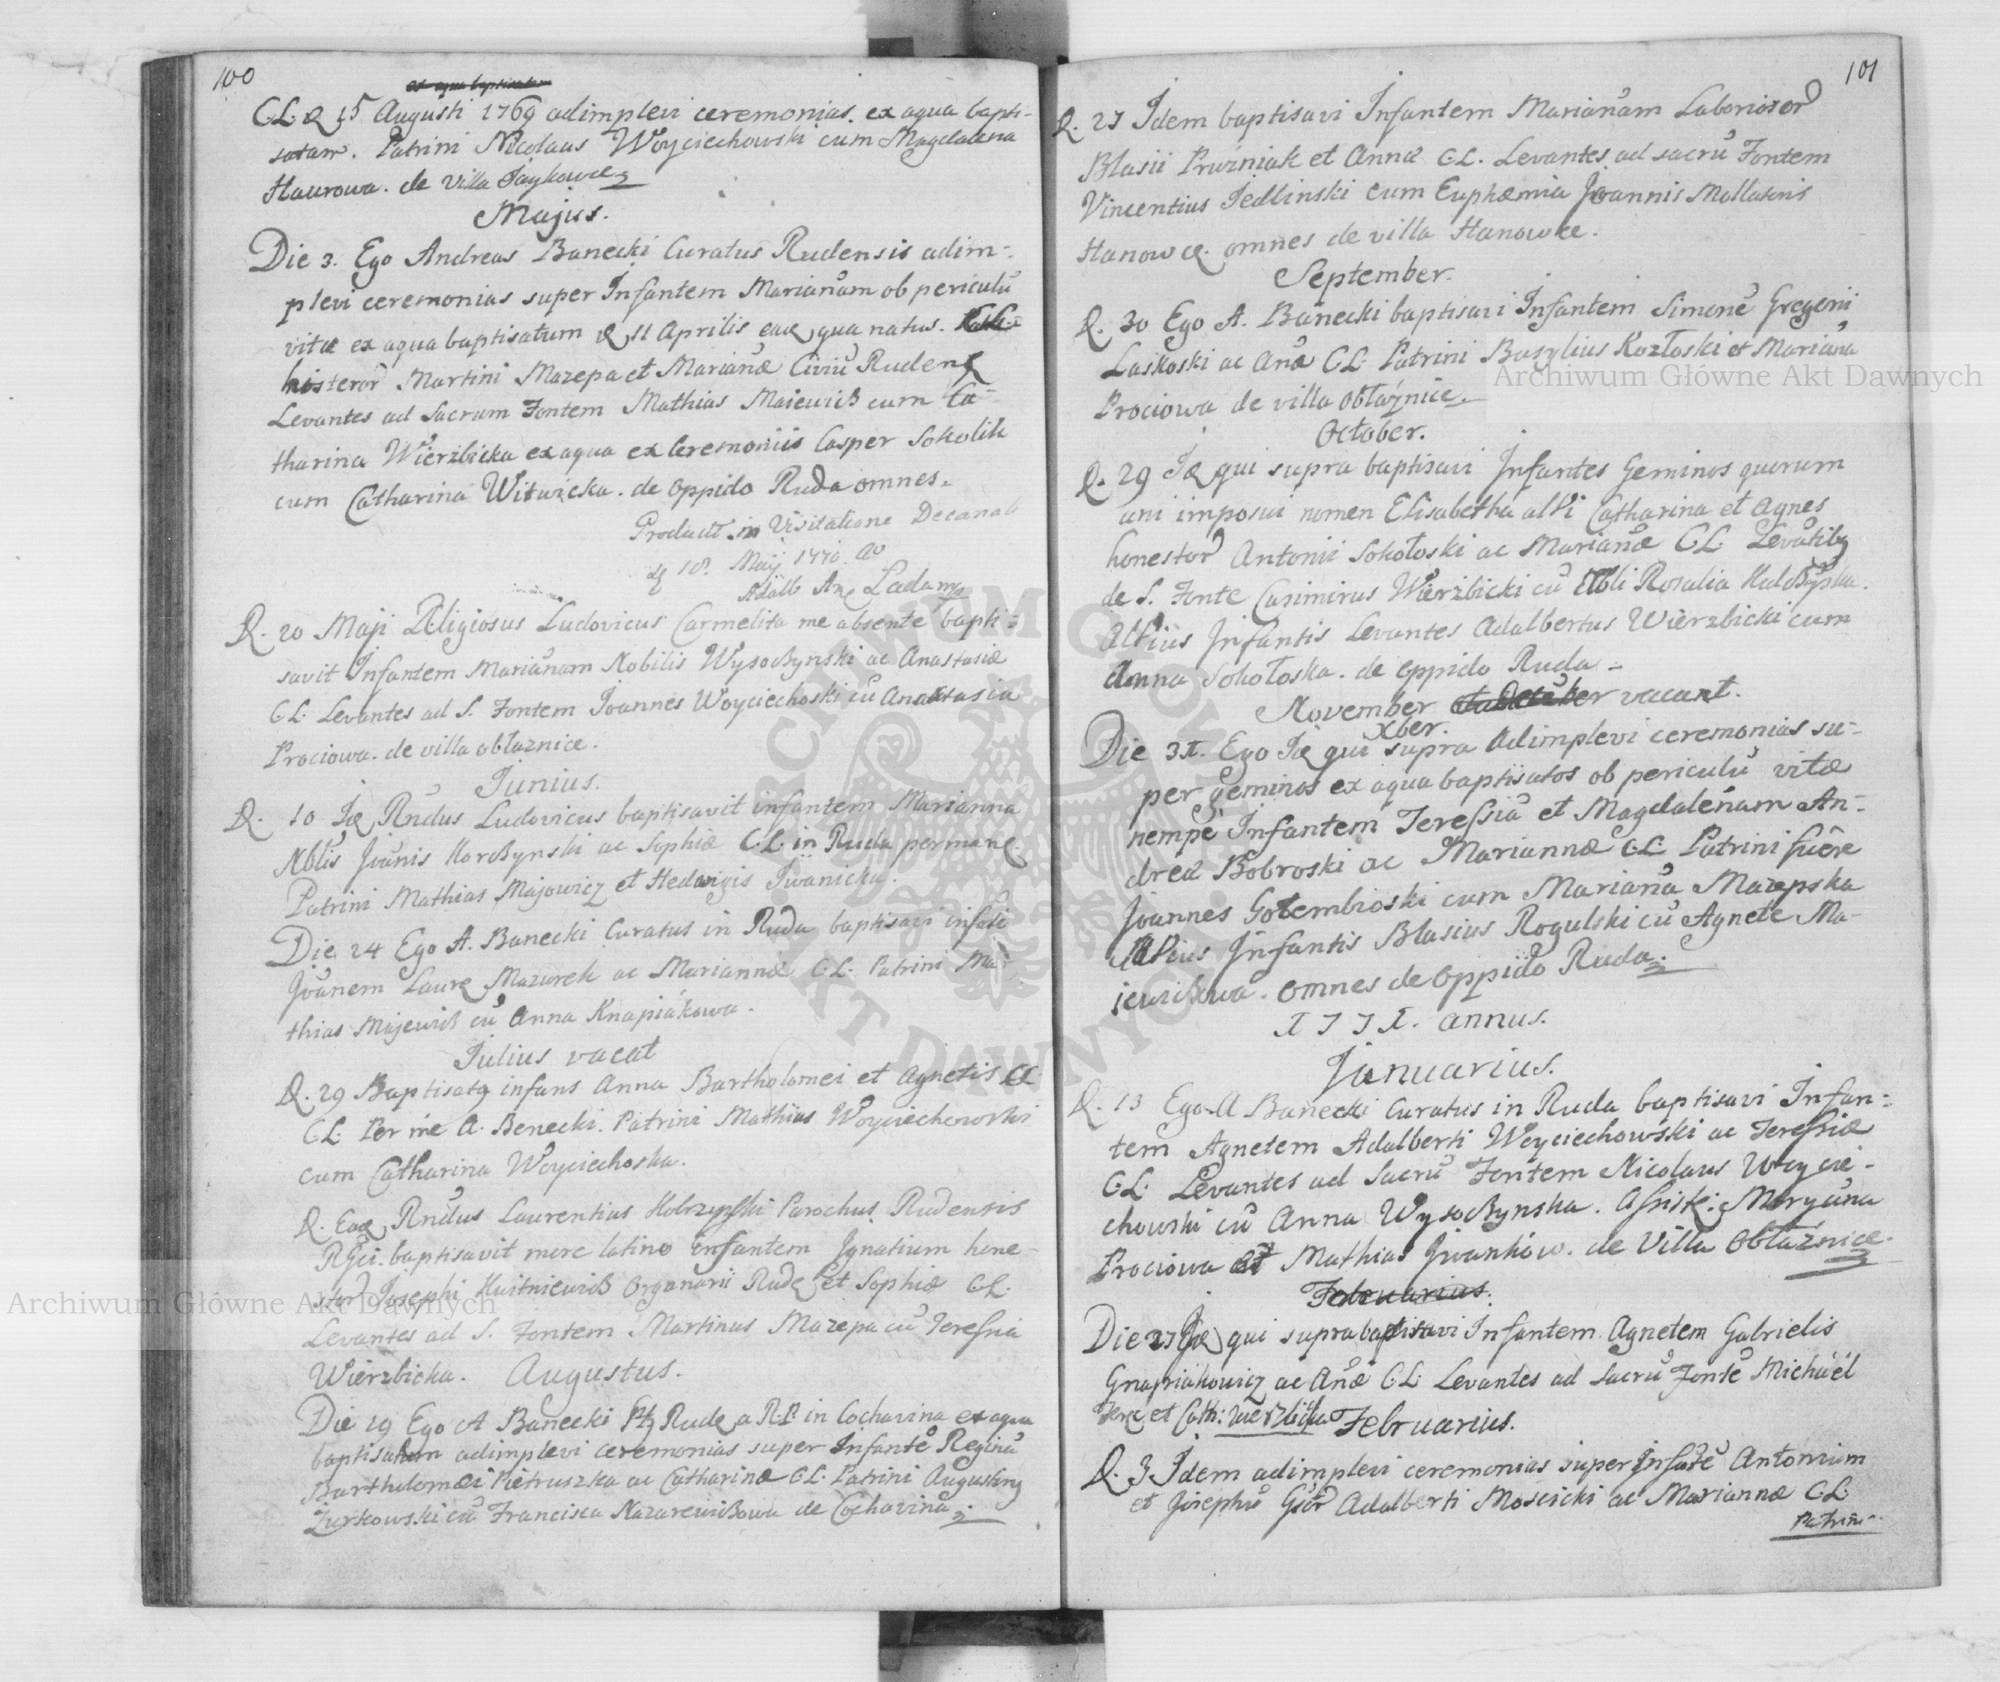 100
ex aqua baptisatam
C.L. d. 15 Augusti 1769 adimplevi ceremonias. ex aqua bapti-
satam. Patrini Nicolaus Woyciechowski cum Magdalena
Haurowa. de villa
Majus.
Die 3. Ego Andreas Banecki Curatus Rudensis adim-
plevi ceremonias super Infantem Mariañam ob periculũ
vitæ ex aqua baptisatum d. 11 Aprilis eaq qua natus.
Martini Mazepa et Mariañæ Civiũ Rudens
Levantes ad Sacrum Fontem Mathias Maiewicz cum Ca-
tharina Wierzbicka ex aqua ex Ceremoniis Casper Sokolik
cum Catharina Witwicka. de Oppido Ruda omnes.
Product. in Visitatione Decanali
18. Maij 1770.
D. 20 Maji Religiosus Ludovicus Carmelita me absente bapti-
savit Infantem Mariañam Nobilis Wysoczynski ac Anastasiæ
C.L. Levantes ad S. Fontem Joannes Woyciechoski cũ Anastasia
Prociowa. de villa obłaznice.
Junius.
D. 10 Id Rñdus Ludovicus baptisavit infantem Marianna
Nblis Joãnis Korczynski ac Sophiæ C.L. in Ruda permanē
Patrini Mathias Majowicz et Hedwigis Iwanicka.
Die 24 Ego A. Banecki Curatus in Ruda baptisavi infãtē
Joãnem Laurẽ Mazurek ac Mariannæ C.L. Patrini Ma-
thias Majewicz cũ Anna Knapiakowa.
Julius vacat
D. 29 Baptisatq infans Anna Bartholomei et Agnetis
C.L. Per me A. Benecki. Patrini Mathias Woyciechowski
cum Catharina Woyciechoska.
D. Eaq Rñdus Laurentius Parochus Rudensis
baptisavit more latino infantem Ignatium hone-
Josephi Organarii Rudę et Sophiæ C.L.
Levantes ad S. Fontem Martinus Mazepa cũ Teressia
Wierzbicka. Augustus.
Die 19 Ego A Banecki Rudę a R.P. in Cochavina ex aqua
baptisatam adimplevi ceremonias super Infantē Reginã
Bartholomæi Pietruszka ac Catharinæ C.L. Patrini Augustinq
Żurkowski cũ Francisca Nazarewiczowa de Cochavina.
101
D. 27 Idem baptisavi Infantem Mariañam Laborioso
Blasii Pruzniak et Annæ C.L. Levantes ad sacrũ Fontem
Vincentius Jedlinski cum Euphæmia Joannis Mollatoris
Hanowcę. omnes de villa Hanowce.
September.
D. 30 Ego A. Banecki baptisavi Infantem Simonē Gregorii
Laskoski ac Añæ C.L. Patrini Basylius Kozłoski et Mariaña
Prociowa de villa obłaznice.
October.
D. 29 Id qui supra baptisavi Infantes Geminos quorum
uni imposui nomen Elisabetha alti Catharina et Agnes
honestor Antonii Sokołoski ac Mariañæ C.L. Levãtibq
de S. Fonte Casimirus Wierzbicki cũ Rosalia
Altius Infantis Levantes Adalbertus Wierzbicki cum
Anna Sokołoska. de oppido Ruda.
November et December vacant.
Xber.
Die 31. Ego Id qui supra Adimplevi ceremonias su-
per geminos ex aqua baptisatos ob periculũ vitæ
nempe Infantem Teressiã et Magdaleñam An-
dreæ Bobroski ac Mariannæ C.L. Patrini fuēre
Joannes Gołembioski cum Mariaña Mazepska
Altius Infantis Blasius Rogulski cũ Agnete Ma-
iewiczowa. omnes de Oppido Ruda.
1771. annus.
Januarius.
D. 13 Ego A Banecki Curatus in Ruda baptisavi Infan-
tem Agnetem Adalberti Woyciechowski ac Teressiæ
C.L. Levantes ad Sacrũ Fontem Nicolaus Woycie-
chowski cũ Anna Wysoczynska. Assistē: Maryana
Prociowa et Mathias Iwankow. de Villa Obłaznice.
Februarius.
Die 27 Id qui supra baptisavi Infantem Agnetem Gabrielis
Gnapriakowicz ac Añæ C.L. Levantes ad Sacrũ Fontē Michaël
et Cath: Wierzbicka Februarius.
D. 3 Idem adimplevi ceremonias super Infãtē Antonium
et Josephũ Adalberti Moscicki ac Mariannæ C.L.
Patrini
Archiwum Główne Akt Dawnych
Archiwum Główne Akt Dawnych
ARCHIWUM GŁÓWNE AKT DAWNYCH